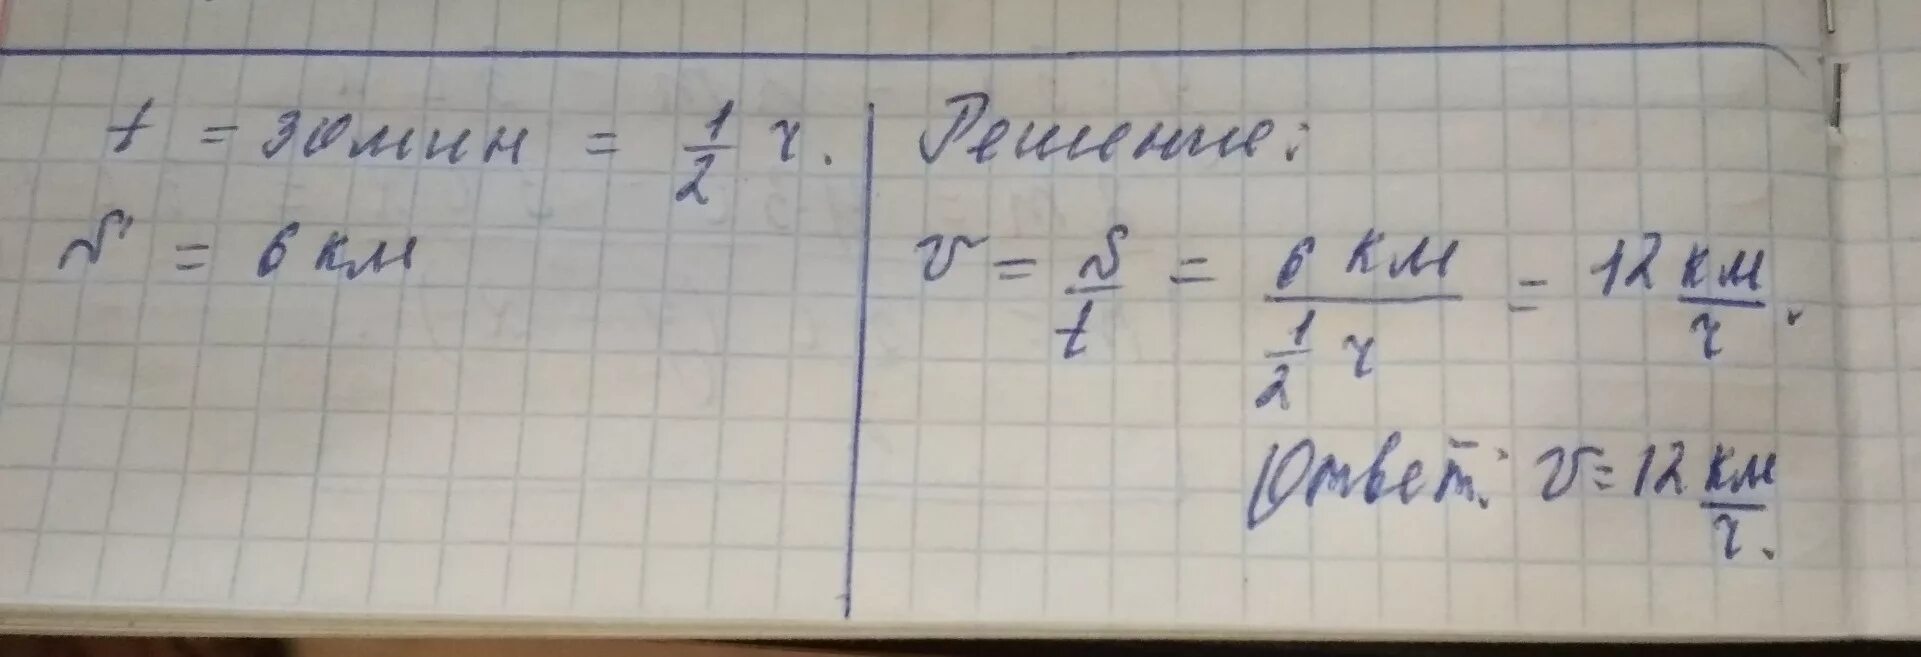 t = 30 мин = 1/2 ч.
S = 6 км
Решение:
v = S/t = 6 км / 1/2 ч = 12 км/ч.
Ответ: v = 12 км/ч.